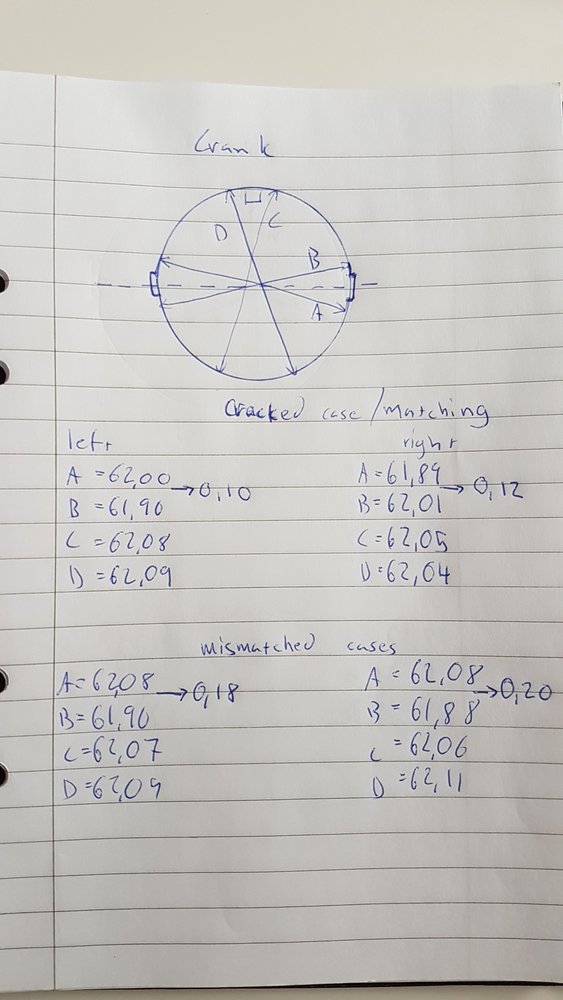 Crank
D C
B
A
Cracked case/matching
left right
A =62,00 →0,10 A=61,89 → 0,12
B =61,90 B=62,01
C =62,08 C=62,05
D =62,09 D=62,04
mismatched cases
A=62,08 →0,18 A = 62,08 →0,20
B=61,90 B = 61,88
C=62,07 C =62,06
D=62,09 D =62,11